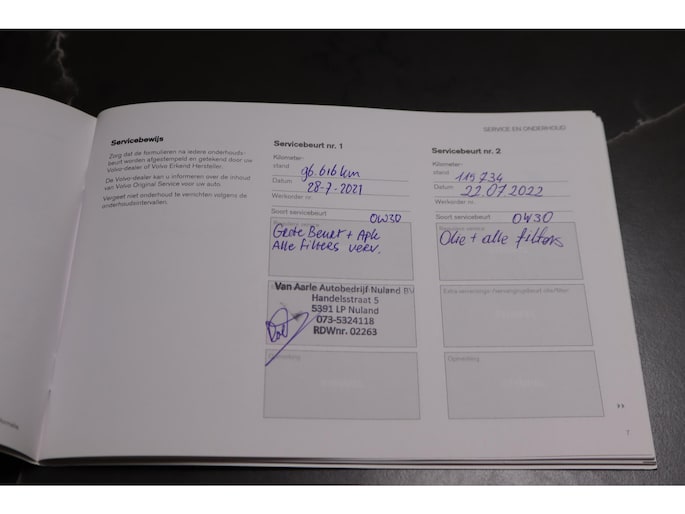 SERVICE EN ONDERHOUD
Servicebewijs
Zorg dat de formulieren na iedere onderhouds-
beurt worden afgestempeld en getekend door uw
Volvo-dealer of Volvo Erkend Hersteller.
De Volvo-dealer kan u informeren over de inhoud
van Volvo Original Service voor uw auto.
Vergeet niet onderhoud te verrichten volgens de
onderhoudsintervallen.
Servicebeurt nr. 1
Kilometer-
stand 96.616 km
Datum 28-7-2021
Werkorder nr.
Soort servicebeurt 0W30
Grote Beurt + Apk
Alle Filters verv.
Van Aarle Autobedrijf Nuland BV
Handelsstraat 5
5391 LP Nuland
073-5324118
RDWnr. 02263
Opmerking
Servicebeurt nr. 2
Kilometer-
stand 115734
Datum 22.07.2022
Werkorder nr.
Soort servicebeurt 0W30
Olie + alle filters
Opmerking
7